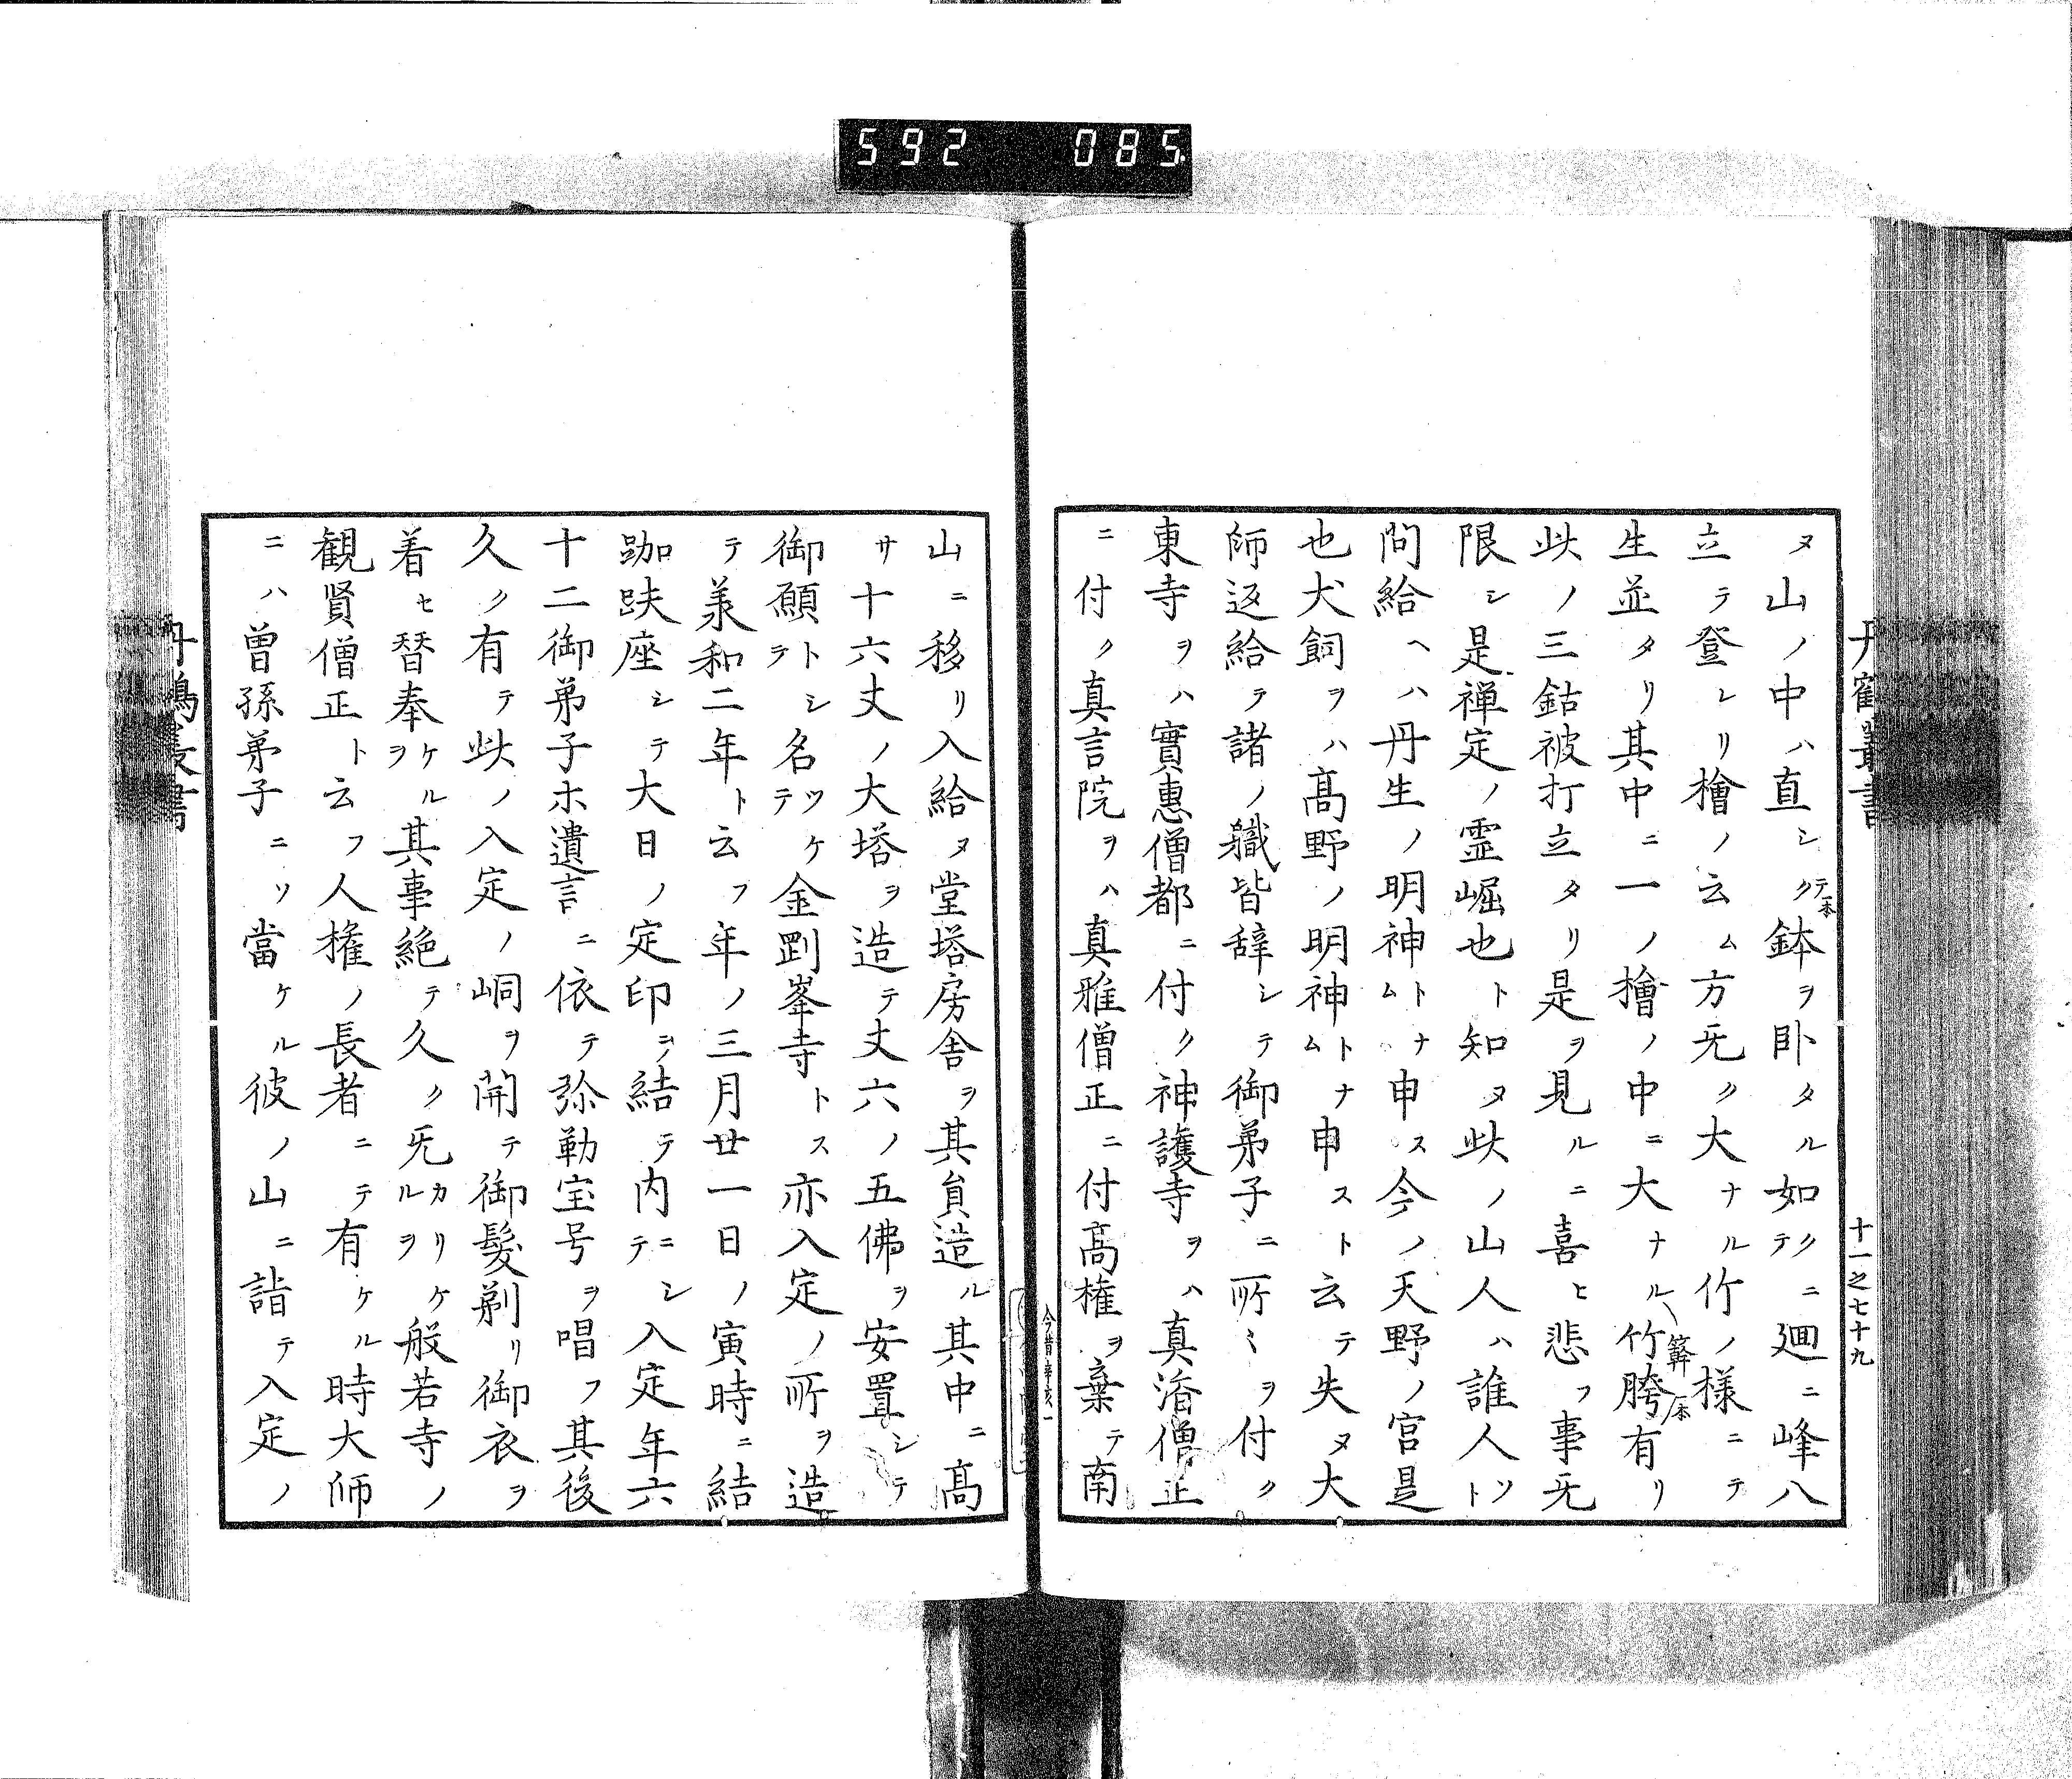 592 085
十一之七十九
ヌ山ノ中ハ直シクテ本鉢ヲ臥タル如クテニ廻ニ峰八
立テ登レリ檜ノ云ム方旡ク大ナル竹ノ様ニテ
生並タリ其中ニ一ノ檜ノ中ニ大ナル竹胯有リ
此ノ三鈷被打立タリ是ヲ見ルニ喜ヒ悲フ事旡
限シ是禅定ノ霊崛也ト知ヌ此ノ山人ハ誰人ソト
問給ヘハ丹生ノ明神トナム申ス今ノ天野ノ宮是
也犬飼ヲハ髙野ノ明神トナム申スト云テ失ヌ大
師返給テ諸ノ軄皆辞シテ御弟子ニ所ミヲ付ク
東寺ヲハ實惠僧都ニ付ク神護寺ヲハ真濟僧正
ニ付ク真言院ヲハ真雅僧正ニ付髙権ヲ棄テ南
山ニ移リ入給ヌ堂塔房舎ヲ其員造ル其中ニ髙
サ十六丈ノ大塔ヲ造テ丈六ノ五佛ヲ安置シテ
御願トシテ名ツケテ金剛峯寺トス亦入定ノ所ヲ造
テ羕和二年ト云フ年ノ三月廿一日ノ寅時ニ結
跏趺座シテ大日ノ定印ヲ結テ内ニシテ入定年六
十二御弟子ホ遺言ニ依テ弥勒宝号ヲ唱フ其後
久ク有テ此ノ入定ノ峒ヲ開テ御髪剃リ御衣ヲ
着セ替奉ケルヲ其事絶テ久ク旡カリケルヲ般若寺ノ
観賢僧正ト云フ人権ノ長者ニテ有ケル時大師
ニハ曽孫弟子ニソ當ケル彼ノ山ニ詣テ入定ノ